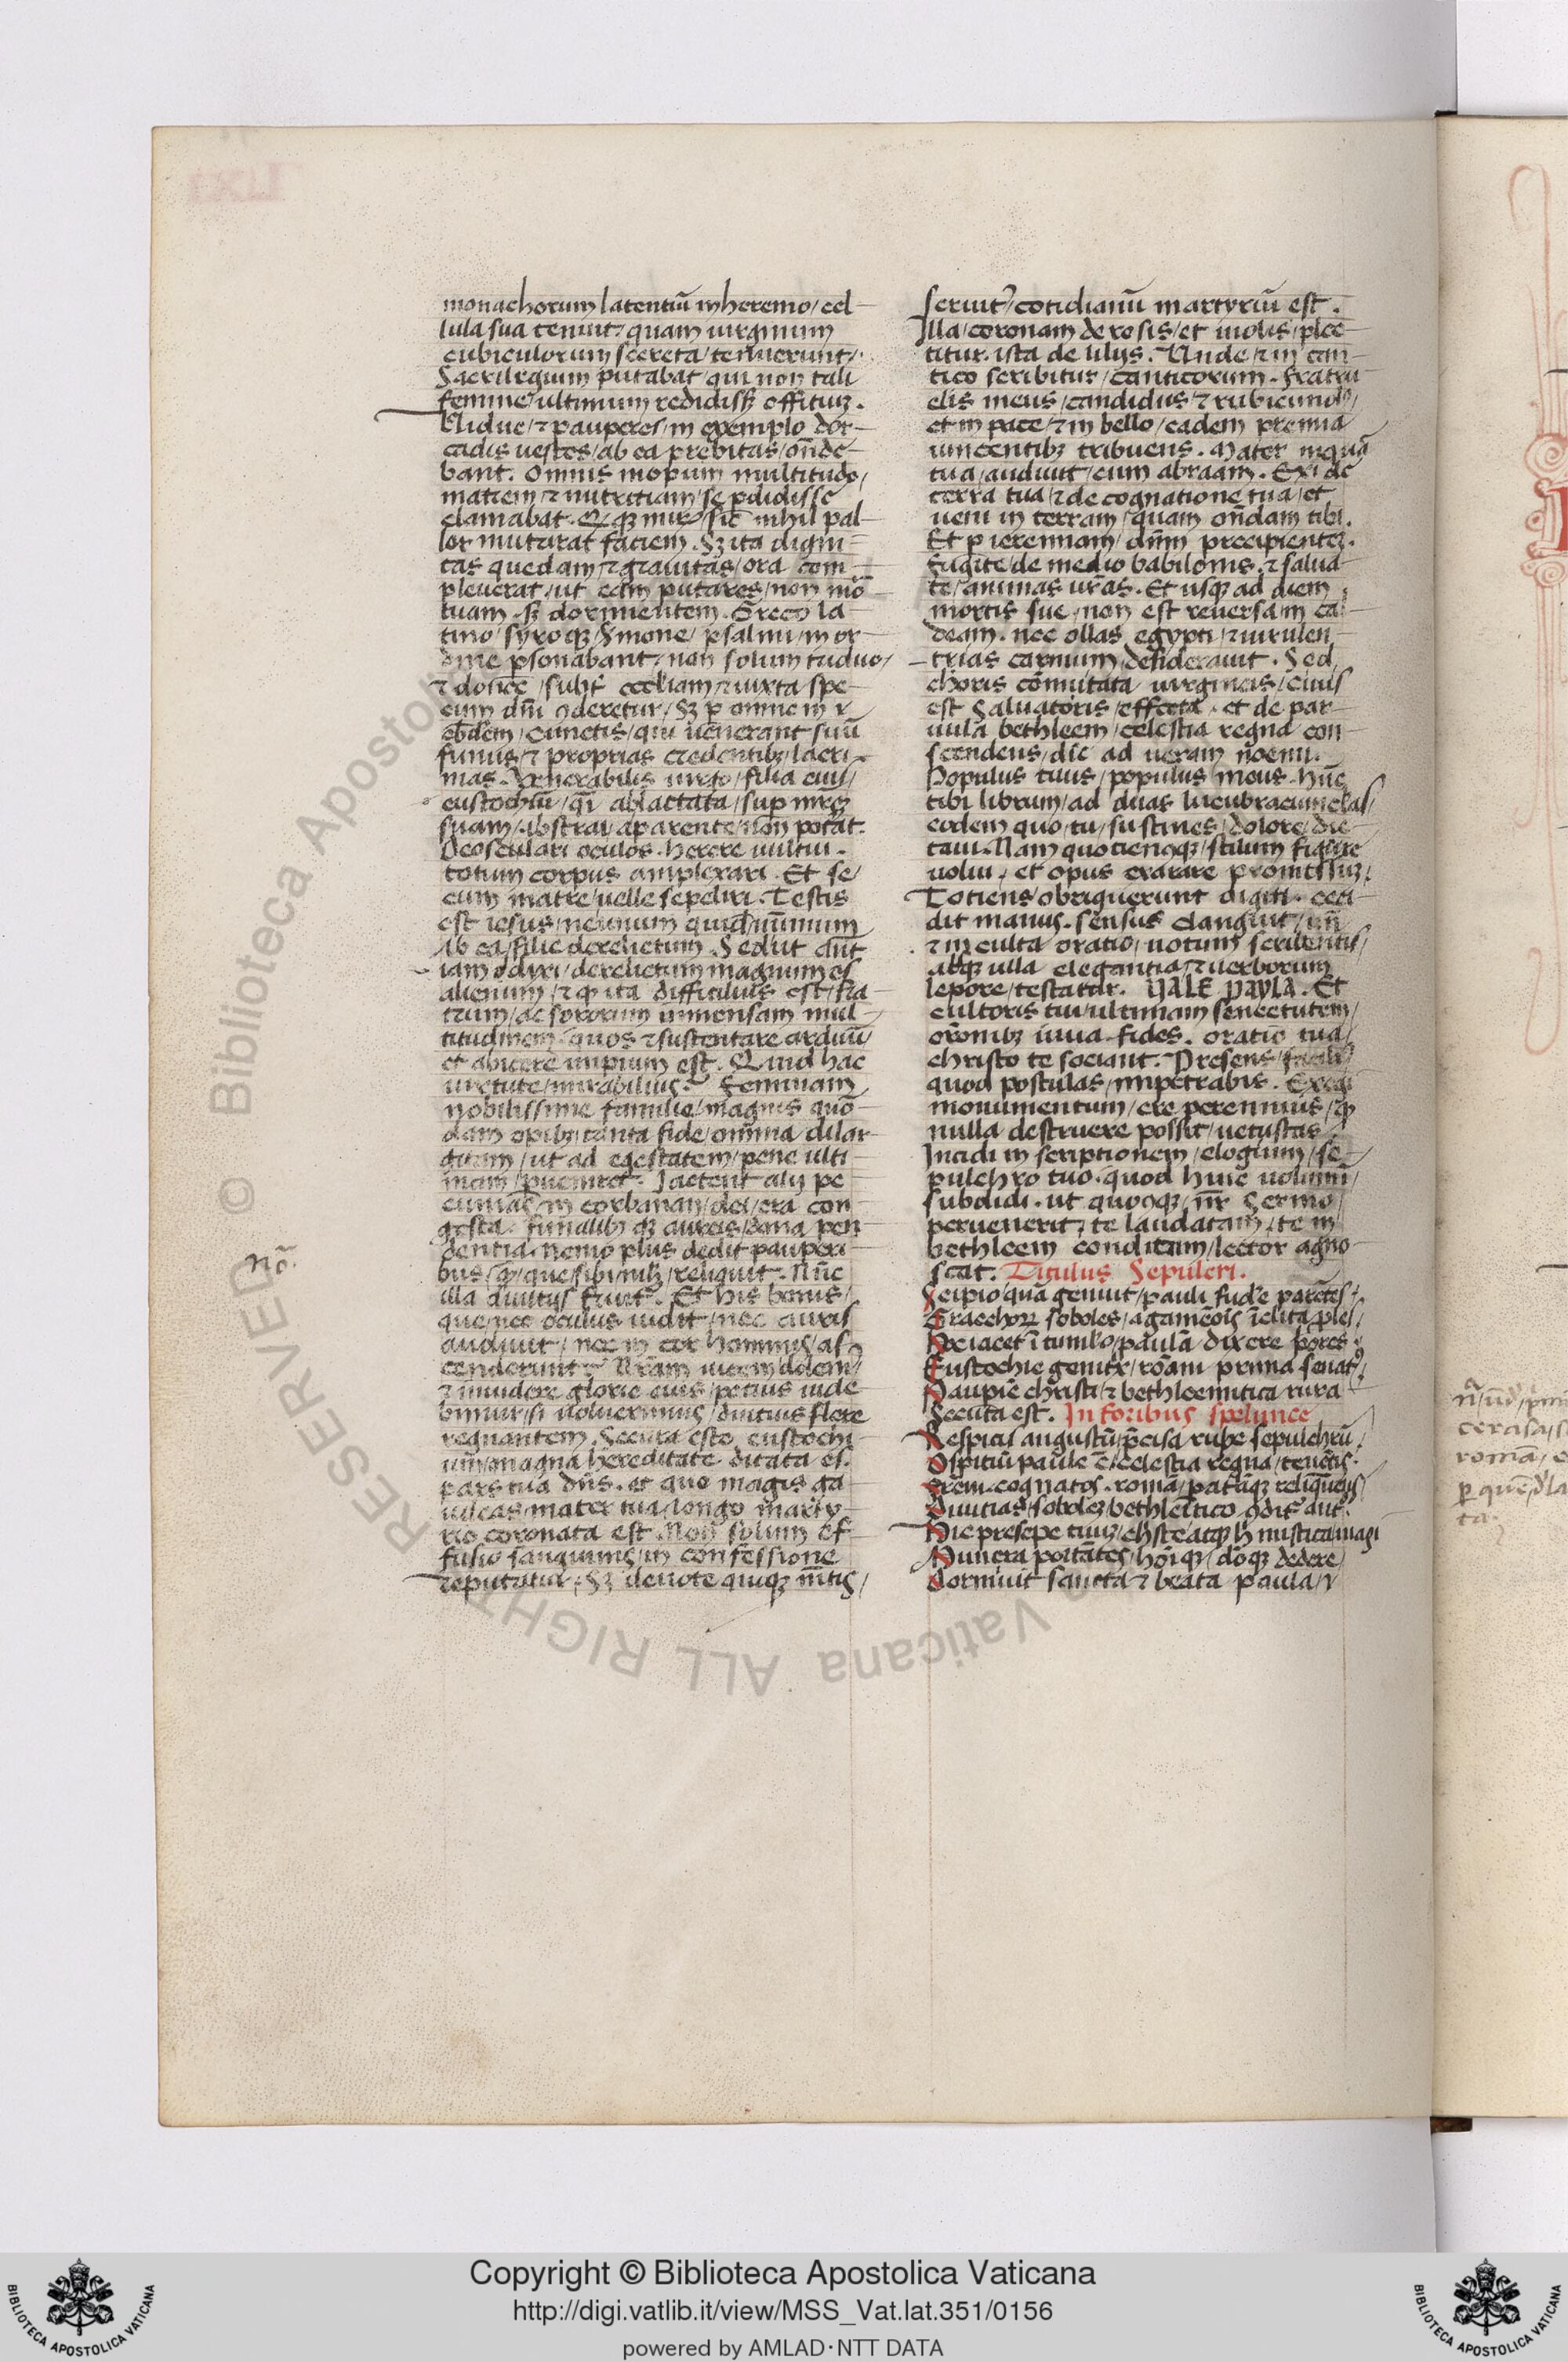 monachorum latentiū in heremo / cel
lula sua tenuit / quam uirginum
cubiculorum secreta / tenuerunt /
Sacrilegium putabat / qui non tali
femine / ultimum redidisȝ offitiuȝ .
Uidue / ⁊ pauperes / in exemplo dor
cadis uestes / ab ea prebitas / oñde
bant . Omnis inopum multitudo /
matrem / ⁊ nutritiam / se pdidisse
clamabat . Qđqȝ miȓ / sic nihil pal
lor mutarat fatiem . Sȝ ita digni
tas quedam / ⁊ grauitas / ora com
pleuerat / ut eam putares / non mō
tuam . sȝ dormientem . Greco la
tino / syroqȝ / smone / psalmi / in or
dine psonabant / non solum triduo /
⁊ donec / subt̄ eccl̄iam / ⁊ iuxta spe
cum dn̄i ꝯderetur / Sȝ p omnem
ebdēm / cunctis / qui uenerant suū
funus / ⁊ proprias credentibȝ / lacri
mas . Venerabilis uirgo / filia eius /
eustochiū / qī ablactata / sup mr̄eȝ
suam / abstrai / a parente / non potāt .
Deosculari oculos . herere uultui .
totum corpus amplexari . Et se /
cum matre / uelle sepeliri . Testis
est iesus / ne unum quidē nūmum
Ab ea / filie derelictum . Sed ut ant̄
iam ꝺixi / derelictum magnum es
alienum / ⁊ qđ ita diffitilius est / fra
trum / ac sororum inmensam mul
titudinem / quos ⁊ sustentare arduū
et abicere impium est . Quid hac
uirtute / mirabilius ? feminam
nobilissime familie / magnis quō
dam opibȝ / tanta fide / omnia dilar
gitam / ut ad egestatem / pene ulti
mam / pueniret . Iactent alij pe
cunias / in corbanan / dei / era con
gesta . funalibȝ qȝ aureis / dona pen
dentia . nemo plus dedit pauperi
bus / qȝ / que / sibi / nihil / reliquit . Nūc
illa diuitijs fruit . Et his bonis /
que / nec oculus uidit / nec auris
audiuit / nec in cor hominis / as
cenderunt . Nr̄am uicem dolem /
⁊ inuidere glorie eius / potius uide
bimur / si uoluerimus / diutius flere
regnantem . Secura esto eustochi
um / magna hereditate ditata es .
pars tua dn̄s . et quo magis ga
udeas / mater tua / longo marty
rio coronata est . Non solum ef
fusio sanguinis / in confessione
reputatur / Sȝ deuote quiqȝ mētis /
seruitȝ / cotidianū martyriū est .
Illa / coronam de rosis / et uiolis / plec
titur . ista de lilijs . Unde / ⁊ in can
tico scribitur / canticorum . fratru
elis meus / candidus / ⁊ rubicundȝ /
et in pace / ⁊ in bello / eadem premia
uincentibȝ tribuens . Mater inquā
tua / audiuit / cum abraam . Exi de
terra tua / ⁊ de cognatione tua / et
ueni in terram / quam oñdam tibi .
Et p ieremiam / dn̄m precipienteȝ .
fugite / de medio babilonis . ⁊ salua
te / animas ur̄as . Et usqȝ ad diem
mortis sue / non est reuersa / in cal
deam . nec ollas egypti / ⁊ uirulen
trias carnium / desiderauit . Sed
choris cōmutata uirgineis / ciuis
est Saluatoris / effecta . et de par
uula bethleem / celestia regna con
scendens / dic ad ueram noemi .
Populus tuus / populus meus . hūc
tibi librum / ad duas lucubraciunclas /
eodem quo / tu / sustines / dolore / dic
taui . Nam quotienqȝ / stilum figere
uolui / et opus exarare promissuȝ /
Totiens / obriguerunt digiti . ceci
dit manus . sensus elanguit / un̄
⁊ inculta oratio / uotum scribentis /
absqȝ ulla elegantia / ⁊ uerborum
lepore / testatur . VALE PAVLA . Et
cultoris tui / ultimam senectutem /
or̄onibȝ iuua . fides . oratio tua
christo te sociant . Presens / facili9
quod postulas / impetrabis . Exegi
monumentum / ere perennius / qđ
nulla destruere possit / uetustas .
Incidi in scriptionem / elogium / se
pulchro tuo . quod huic uolumī /
subdidi . ut quocqȝ / nr̄ Sermo /
peruenerit / te laudatam / te in
bethleem conditam / lector agno
scat . Titulus Sepulcri .
Scipio quā genuit / pauli fude parētes .
Graechoꝝ soboles / agamēois īclita ples /
Hoc iacet ī tumlo / paulā dixere pores .
Eustochie genitx / rōani prima senat9 /
Paupie christi / ⁊ bethleemitica rura
Secuta est . In foribus spelunce
Respicis angustū / p̄cisa rupe sepulchrū /
Ospitiū paule ē / celestia regna / tenētis .
frēm . cognatos . romā / pat̄aqȝ reliquens
Diuitias / soboleȝ / bethleītico ꝯdit ant .
Hic presepe tuuȝ / chste atqȝ h̄ mistica magi
Munera portātes / hōīqȝ / dōqȝ dedere /
Dormiuit sancta ⁊ beata paula /
nō .
cerasa /
romā /
ta .
Copyright © Biblioteca Apostolica Vaticana
http://digi.vatlib.it/view/MSS_Vat.lat.351/0156
powered by AMLAD · NTT DATA
BIBLIOTECA APOSTOLICA VATICANA
BIBLIOTECA APOSTOLICA VATICANA
© Biblioteca Apostolica Vaticana ALL RIGHTS RESERVED